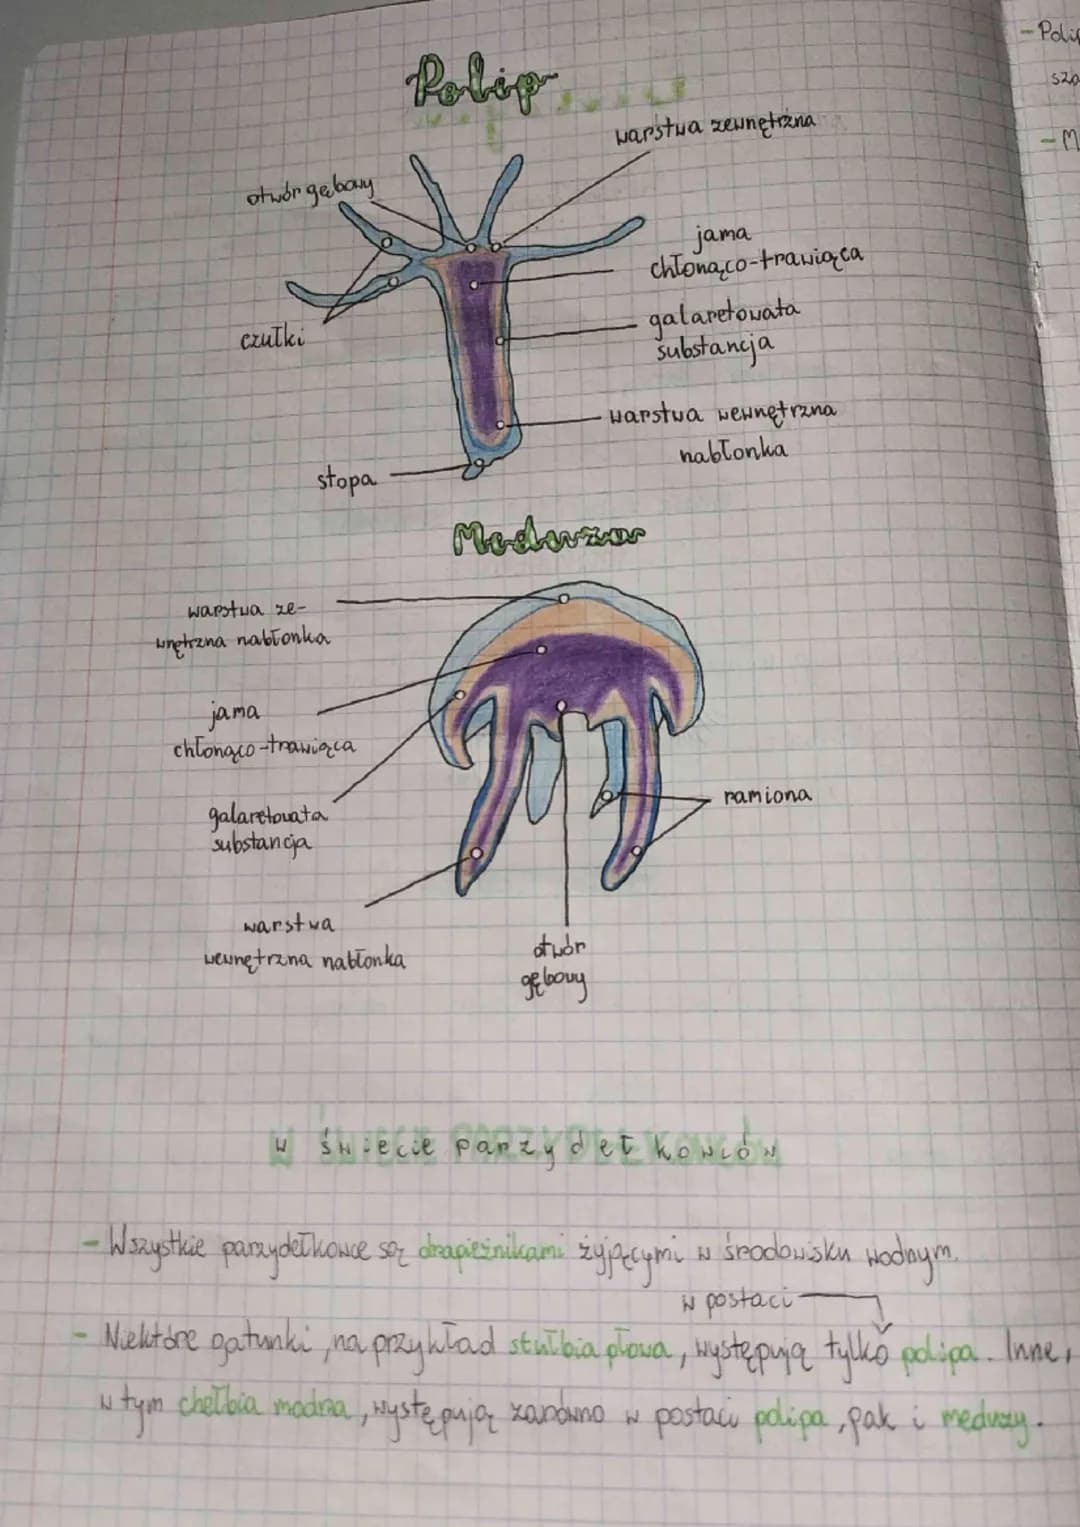 Polip
warstwa zewnętrzna
otwór gębowy
jama
chłonąco-trawiąca
galaretowata
substancja
czułki
warstwa wewnętrzna
nabłonka
stopa
Meduza
warstwa ze-
wnętrzna nabłonka
jama
chłonąco-trawiąca
galaretowata
substancja
ramiona
warstwa
wewnętrzna nabłonka
otwór
gębowy
w świecie parzydełkowców
- Wszystkie parzydełkowce są drapieżnikami żyjącymi w środowisku wodnym.
w postaci
- Niektóre gatunki, na przykład stułbia płowa, występują tylko polipa. Inne,
w tym chełbia modra, występują zarówno w postaci polipa, jak i meduzy.
- Polip
- M